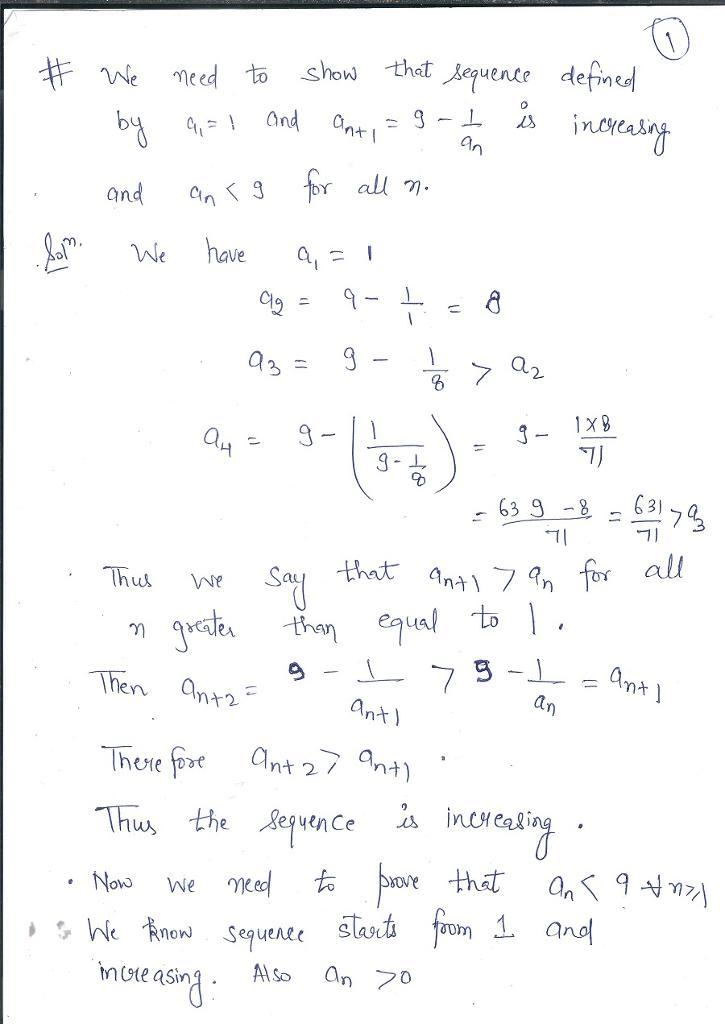 1
# We need to show that sequence defined
by a₁ = 1 and aₙ₊₁ = 9 - 1/aₙ is increasing
and aₙ < 9 for all n.
Solⁿ. We have a₁ = 1
a₂ = 9 - 1/1 = 8
a₃ = 9 - 1/8 > a₂
a₄ = 9 - (1/(9 - 1/8)) = 9 - 1×8/71
= 639 - 8/71 = 631/71 > a₃
· Thus we say that aₙ₊₁ > aₙ for all
n greater than equal to 1.
Then aₙ₊₂ = 9 - 1/aₙ₊₁ > 9 - 1/aₙ = aₙ₊₁
Therefore aₙ₊₂ > aₙ₊₁.
Thus the sequence is increasing.
· Now we need to prove that aₙ < 9 ∀ n≥1
We know sequence starts from 1 and
increasing. Also aₙ > 0